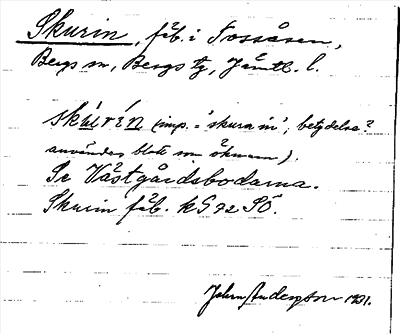 Skurin, fäb. i Fossåsen,
Bergs sn, Bergs tg, Jämtl. l.
skŭrín (imp. = 'skura in', betydelse?
användes blott som öknamn).
Se Västgårdsbodarna.
Skurin fäb. kG72 SÖ.
John Anderson 1931.